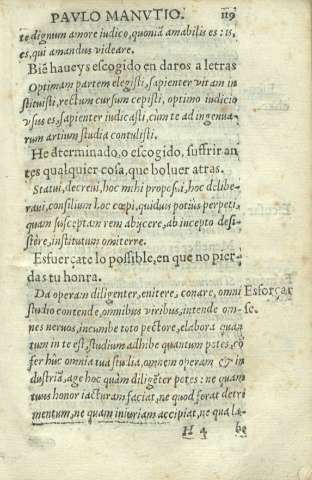 PAVLO MANVTIO. 119
te dignum amore iudico, quoniã amabilis es: is,
es, qui amandus videare.
Biẽ haueys escogido en daros a letras
Optimam partem elegisti, sapienter vitam in
stituisti, rectum cursum cepisti, optimo iudicio
vsus es, sapienter iudicasti, cum te ad ingenua-
rum artium studia contulisti.
He determinado, o escogido, suffrir an
tes qualquier cosa, que boluer atras.
Statui, decreui, hoc mihi proposui, hoc delibe-
raui, consilium hoc cœpi, quiduis potius perpeti,
quam susceptam rem abijcere, ab incepto desi-
stere, institutum omittere.
Esfuerçate lo possible, en que no pier
das tu honra.
Da operam diligenter, enitere, conare, omni
Esforçar
studio contende, omnibus viribus, intende om-
se.
nes neruos, incumbe toto pectore, elabora quan
tum in te est, studium adhibe quantum potes, cõ
fer huc omnia tua studia, omnem operam & in
dustriã, age hoc quàm diligẽter potes: ne quam
tuus honor iacturam faciat, ne quod forat detri
mentum, ne quam iniuriam accipiat, ne qua la-
H 4 be